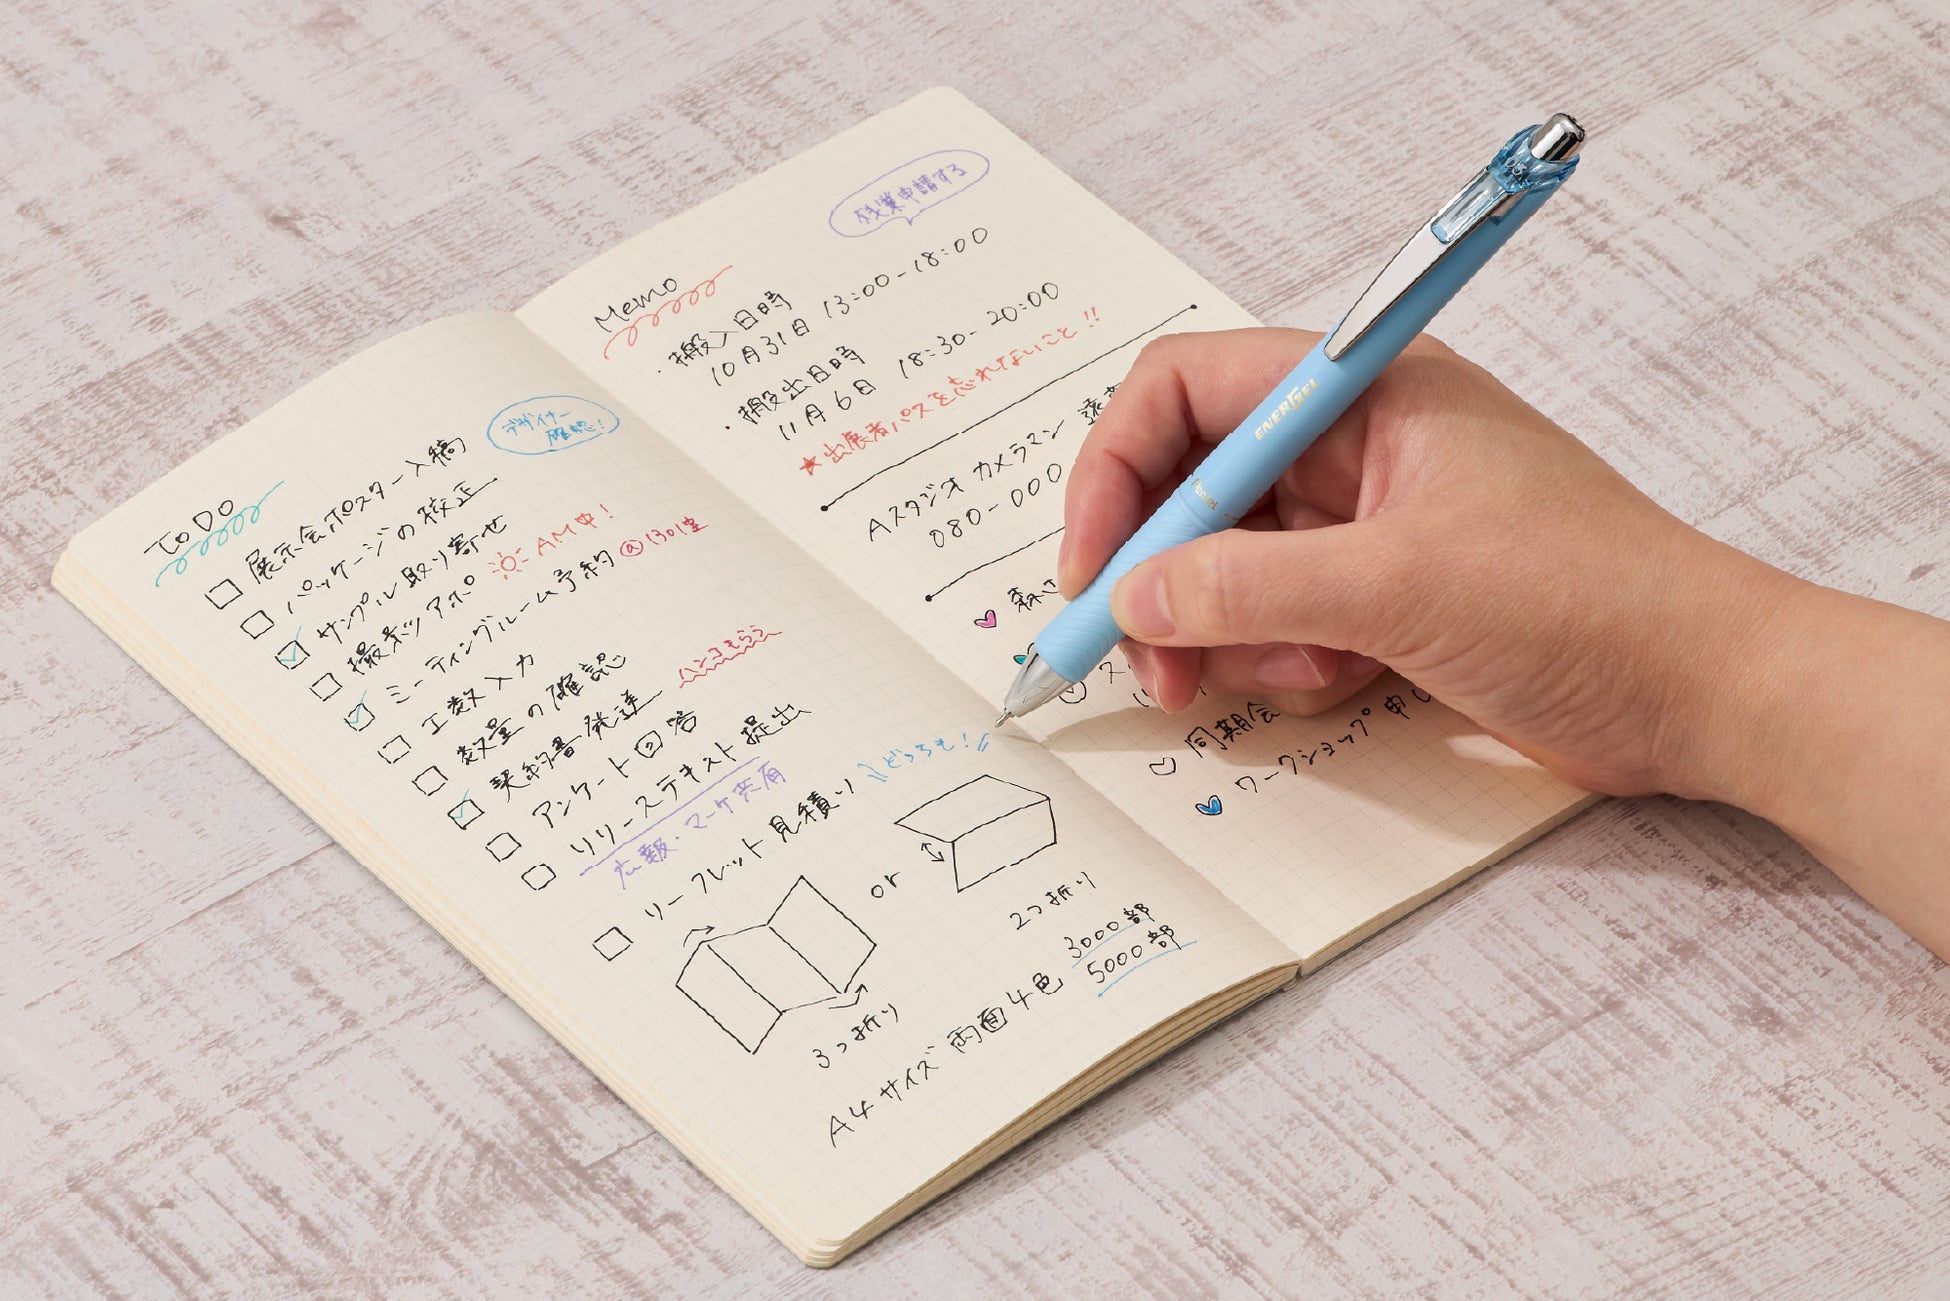 ToDo
デザイナー
確認!
展示会ポスター入稿
パッケージの校正
サンプル取り寄せ
撮影ツアポ AM中!
ミーティングルーム予約 @1301室
工数入力
数量の確認
契約書発送 ハンコもらう
アンケート回答
リリーステキスト提出
広報・マーケ共有
リーフレット見積り どっちも!
or
3つ折り
2つ折り
A4サイズ 両面4色
3000部
5000部
残業申請する
Memo
・搬入日時
10月31日 13:00-18:00
・搬出日時
11月6日 18:30-20:00
★出展者パスを忘れないこと!!
Aスタジオ カメラマン 遠
080-000
森
ス
同期会
ワークショップ申し
ENERGEL
Pentel